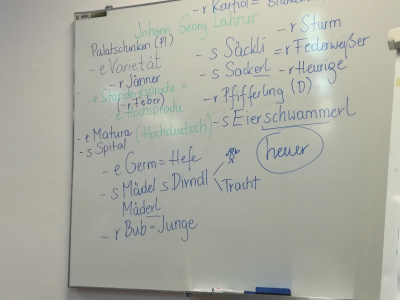 - r Karfiol = Blumenk
Johann Georg Lahner
Palatschinken (Pl)
- e Varietät
- r Jänner
- e Standardsprache =
(- r Feber)
- e Hochsprache
- e Matura (Hochdeutsch)
- s Spital
- e Germ = Hefe
- s Mädel s Dirndl
Mäderl
Tracht
- r Bub = Junge
- r Sturm
- s Säckli = r Federweißer
- s Sackerl - r Heurige
- r Pfifferling (D)
- s Eierschwammerl
heuer